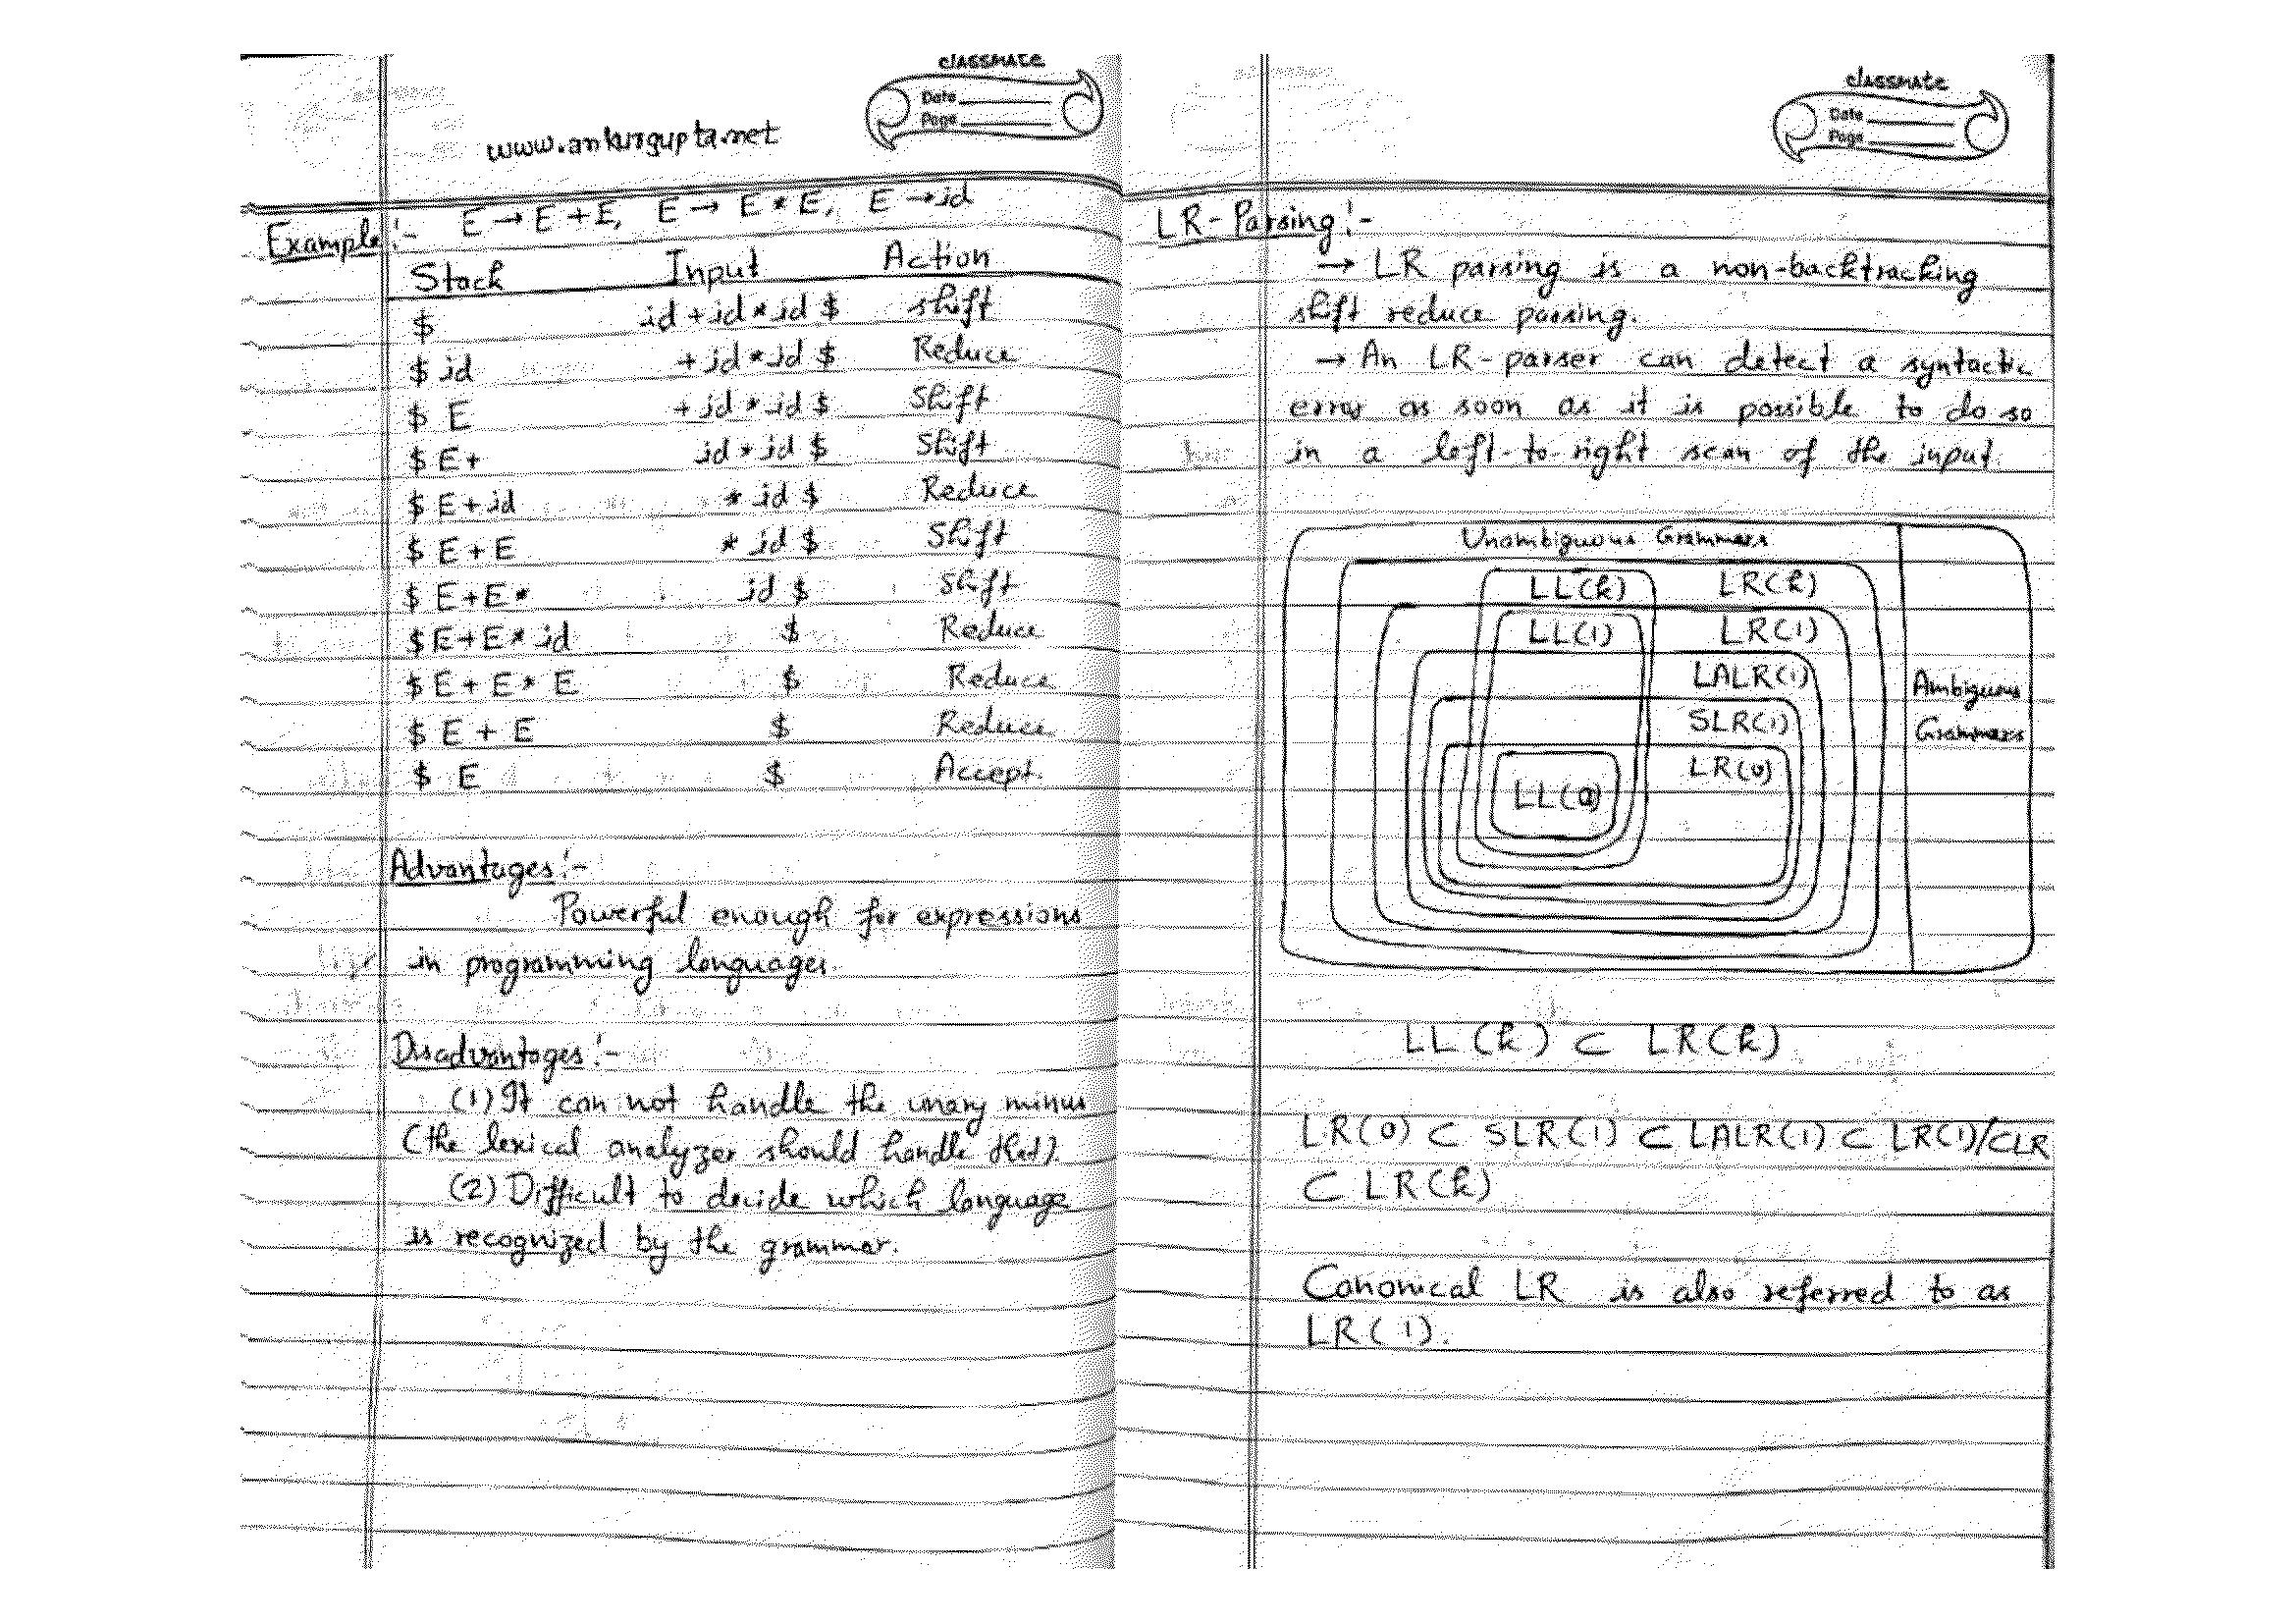 classmate
Date
Page
www.ankurgupta.net
Example:- E → E + E, E → E * E, E → id
Stack Input Action
$ id + id * id $ shift
$ id + id * id $ Reduce
$ E + id * id $ Shift
$ E + id * id $ Shift
$ E + id * id $ Reduce
$ E + E * id $ Shift
$ E + E * id $ Shift
$ E + E * id $ Reduce
$ E + E * E $ Reduce
$ E + E $ Reduce
$ E $ Accept.
Advantages:-
Powerful enough for expressions
in programming languages.
Disadvantages:-
(1) It can not handle the unary minus
(the lexical analyzer should handle that).
(2) Difficult to decide which language
is recognized by the grammar.
classmate
Date
Page
LR-Parsing:-
→ LR parsing is a non-backtracking
shift reduce parsing.
→ An LR-parser can detect a syntactic
error as soon as it is possible to do so
in a left-to-right scan of the input.
Unambiguous Grammars
LL(k) LR(k)
LL(1) LR(1)
LALR(1)
Ambiguous
SLR(1)
Grammars
LR(0)
LL(0)
LL(k) ⊂ LR(k)
LR(0) ⊂ SLR(1) ⊂ LALR(1) ⊂ LR(1)/CLR
⊂ LR(k)
Canonical LR is also referred to as
LR(1).